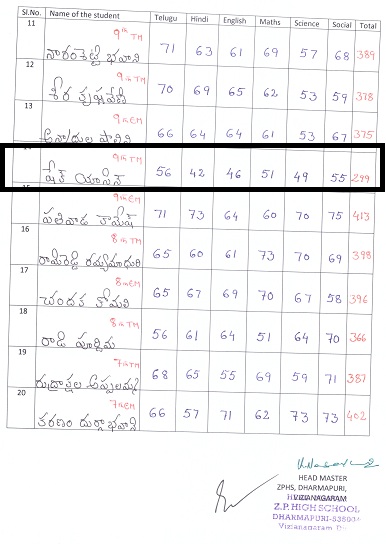 Sl.No. Name of the student Telugu Hindi English Maths Science Social Total
11 9th TM
71 63 61 69 57 68 389
12 9th TM
70 69 65 62 53 59 378
13 9th EM
66 64 64 61 53 67 375
9th TM
షేక్ యాసిన్ 56 42 46 51 49 55 299
9th EM
71 73 64 60 70 75 413
16 8th TM
65 60 61 73 70 69 398
17 8th EM
చందక కోమలి 65 67 69 70 67 58 396
18 8th TM
రాడి పూర్ణిమ 56 61 64 51 64 70 366
19 7th TM
68 65 55 69 59 71 387
20 7th EM
కరణం దుర్గా భవాని 66 57 71 62 73 73 402
HEAD MASTER
ZPHS, DHARMAPURI,
VIZIANAGARAM
Z.P. HIGH SCHOOL
DHARMAPURI-53500
Vizianagaram